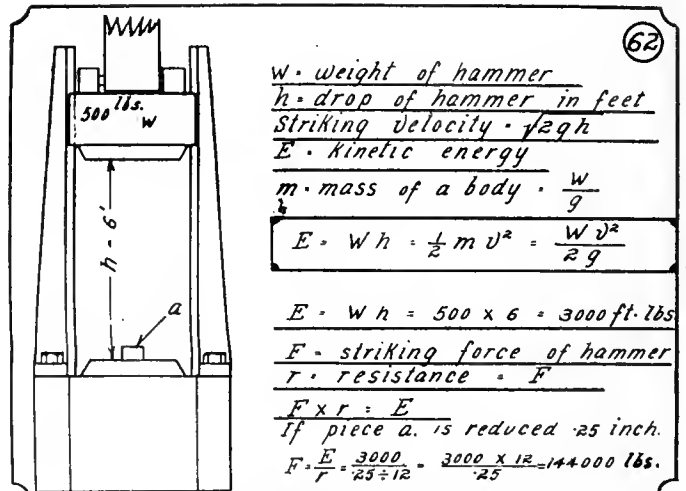 62
500 lbs.
W
h = 6'
a
W = weight of hammer
h = drop of hammer in feet
Striking velocity = √2gh
E = kinetic energy
m = mass of a body = W/g
E = Wh = 1/2 m v² = Wv²/2g
E = Wh = 500 x 6 = 3000 ft. lbs
F = striking force of hammer
r = resistance = F
F x r = E
If piece a. is reduced .25 inch.
F = E/r = 3000/.25÷12 = 3000 x 12/.25 = 144000 lbs.